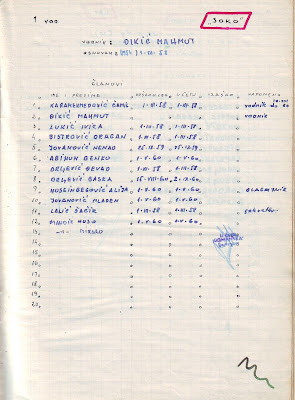 1 VOD "SOKO"
VODNIK: ĐIKIĆ MAHMUT
OSNOVAN: 1.III.58
ČLANOVI
IME I PREZIME POSJEDUJE UČLTV IZAŠAO NAPOMENA
1. KARAMEHMEDOVIĆ ĆAMIL 1.III.58 1.III.58 vodnik do
2. ĐIKIĆ MAHMUT 1.III.58 1.III.58 vodnik
3. LUKIĆ IVICA 1.III.58 1.III.58
4. BISTROVIĆ DRAGAN 1.III.58 1.III.58
5. JOVANOVIĆ NENAD 25.12.59 25.12.59
6. BENKO 1.V.60 1.V.60
7. DELJEVIĆ SEVAD 1.III.58 1.III.58
8. DELJEVIĆ SAŠKA 15.VIII.60 2.IX.60
9. HUSEINBEGOVIĆ ALIJA 1.V.60 1.V.60 BLAGAJNIK
10. JOVANOVIĆ MLADEN 1.V.60 1.V.60
11. LALIĆ ŠAĆIR 1.III.58 1.III.58 sekretar
12. HUSO 1.V.60 1.V.60
13. -"- MIRSAD
14.
15.
16.
17.
18.
19.
20.